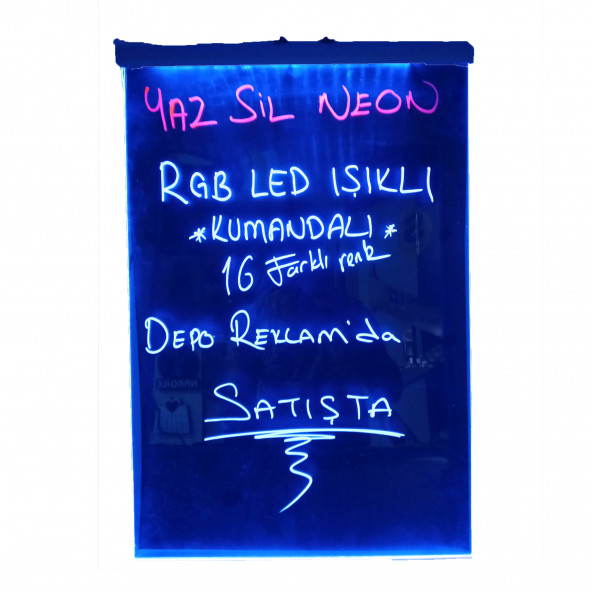 YAZ SİL NEON
RGB LED IŞIKLI
*KUMANDALI*
16 Farklı renk
DEPO REKLAM'da
SATIŞTA